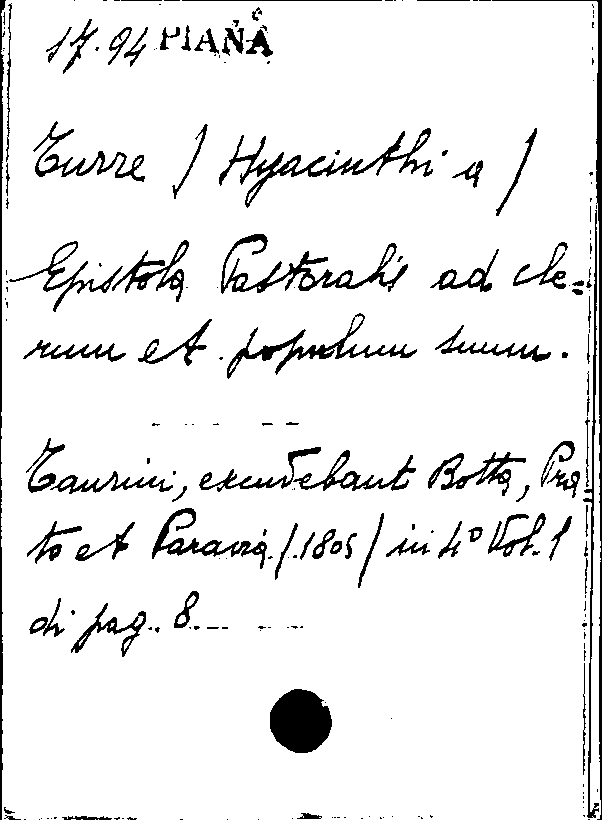 17.94 PIANA
Turre / Hyacinthi a /
Epistola Pastoralis ad cle=
rum et populum suum.
Taurini, excudebant Botta, Pra
to et Paravia / 1805 / in 4° Vol. 1
di pag. 8.